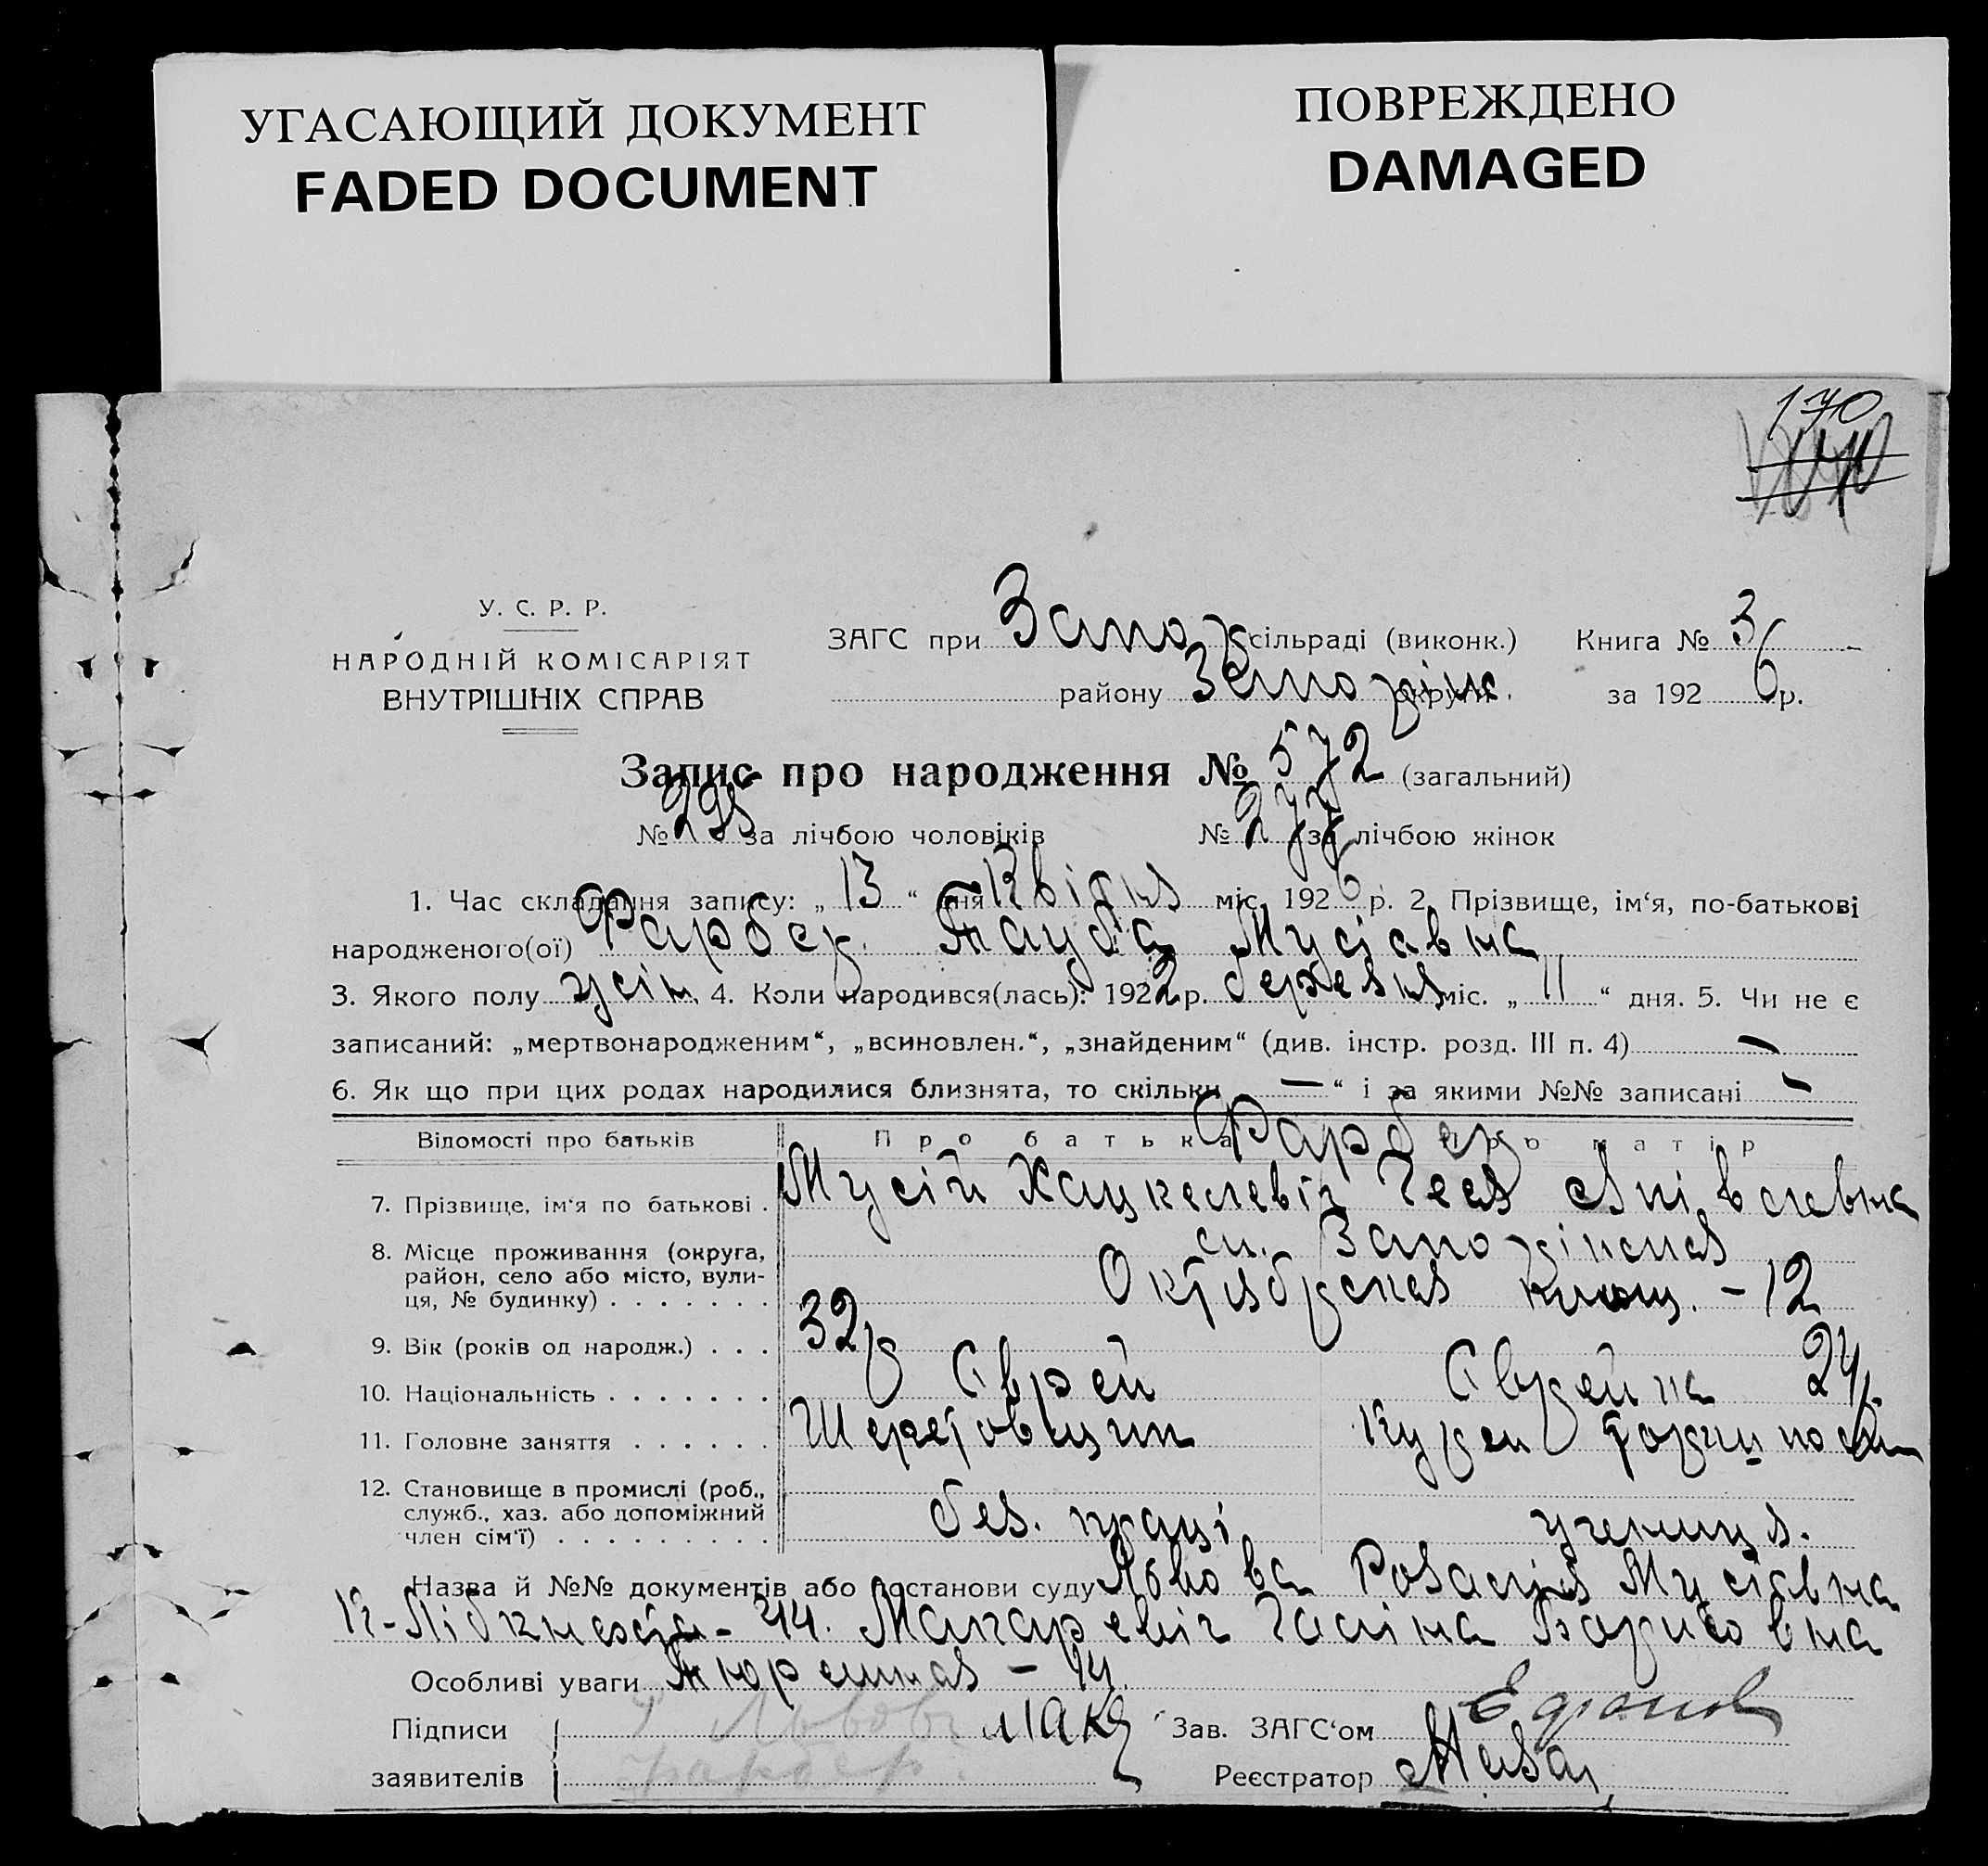 УГАСАЮЩИЙ ДОКУМЕНТ
FADED DOCUMENT
ПОВРЕЖДЕНО
DAMAGED
170
У. С. Р. Р.
НАРОДНІЙ КОМІСАРІЯТ
ВНУТРІШНІХ СПРАВ
ЗАГС при Запо сільраді (виконк.) Книга № 3
району Запоріж округи за 1926 р.
Запис про народження № 572 (загальний)
№ 295 за лічбою чоловіків № 277 за лічбою жінок
1. Час складання запису: „ 13 “ дня Квітня міс. 1926 р. 2. Прізвище, ім‘я, по-батькові
народженого(ої) Фарбер Тауба Мусіавна
3. Якого полу жін. 4. Коли народився(лась): 1922 р. березня міс. „ 11 “ дня. 5. Чи не є
записаний: „мертвонародженим“, „всиновлен.“, „знайденим“ (див. інстр. розд. III п. 4) —
6. Як що при цих родах народилися близнята, то скільки — “ і за якими №№ записані —
Відомості про батьків Про батька Фарбер Про матір
7. Прізвище, ім‘я по батькові . Мусій Хацкелевіч
8. Місце проживання (округа, район, село або місто, вулиця, № будинку) . . . . . . .
Октябрская площ. - 12
9. Вік (років од народж.) . . . 32 р 24 р.
10. Національність . . . . . . . Єврей Єврейка
11. Головне заняття . . . . . . Шеретовщик Курси
12. Становище в промислі (роб., служб., хаз. або допоміжний член сім‘ї) . . . . . . . . . без. праці учениця.
Назва й №№ документів або постанови суду Львова Розалія Мусіавна
К-Лібкнехта - 44. Макаревіч Галіна Борисовна
Особливі уваги Тюремная - 14.
Підписи Львова мака Зав. ЗАГС‘ом
заявителів фарбер. Реєстратор